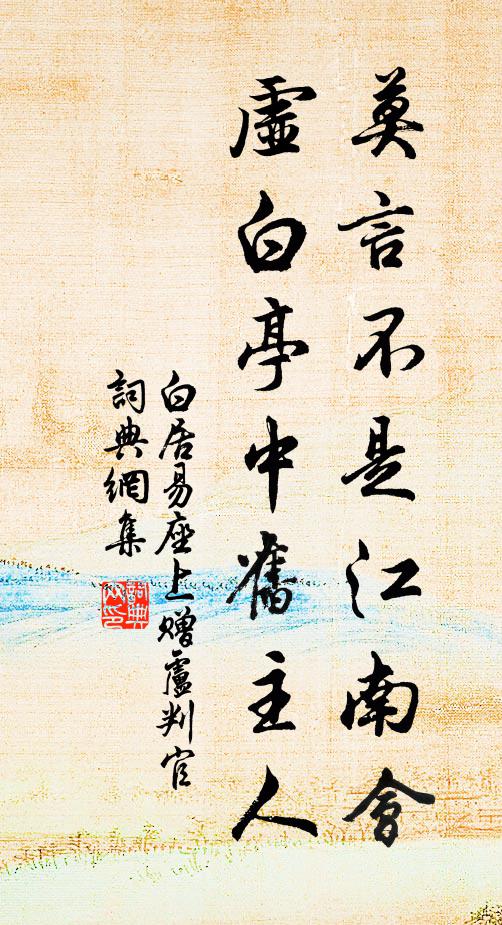 莫言不是江南會
虛白亭中舊主人
白居易座上贈盧判官
詞典網集
詞典文印